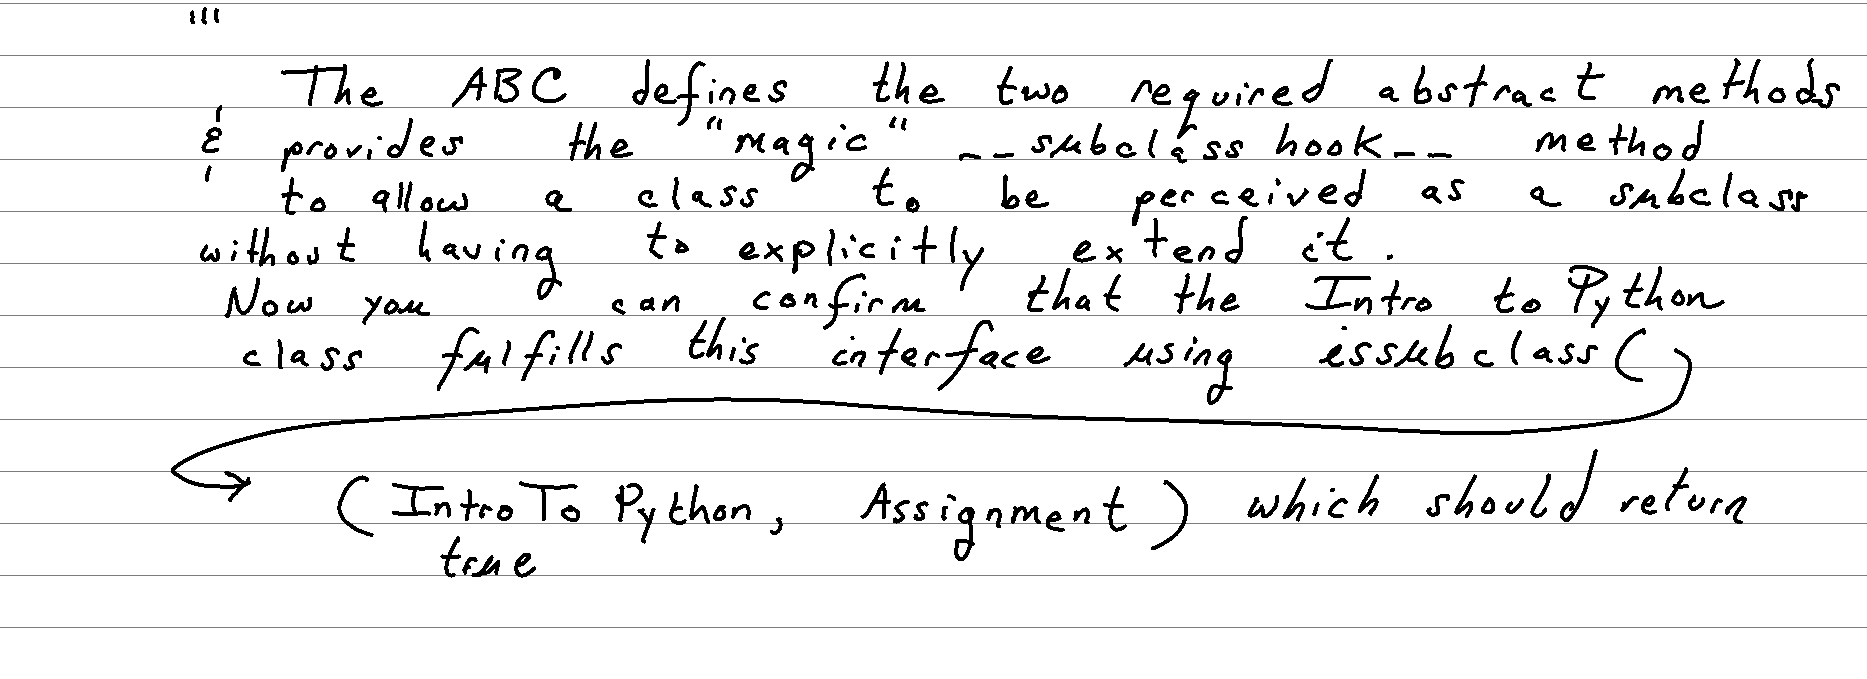 '''
The ABC defines the two required abstract methods
& provides the "magic" __subclasshook__ method
to allow a class to be perceived as a subclass
without having to explicitly extend it.
Now you can confirm that the Intro to Python
class fulfills this interface using issubclass()
(IntroToPython, Assignment) which should return
true